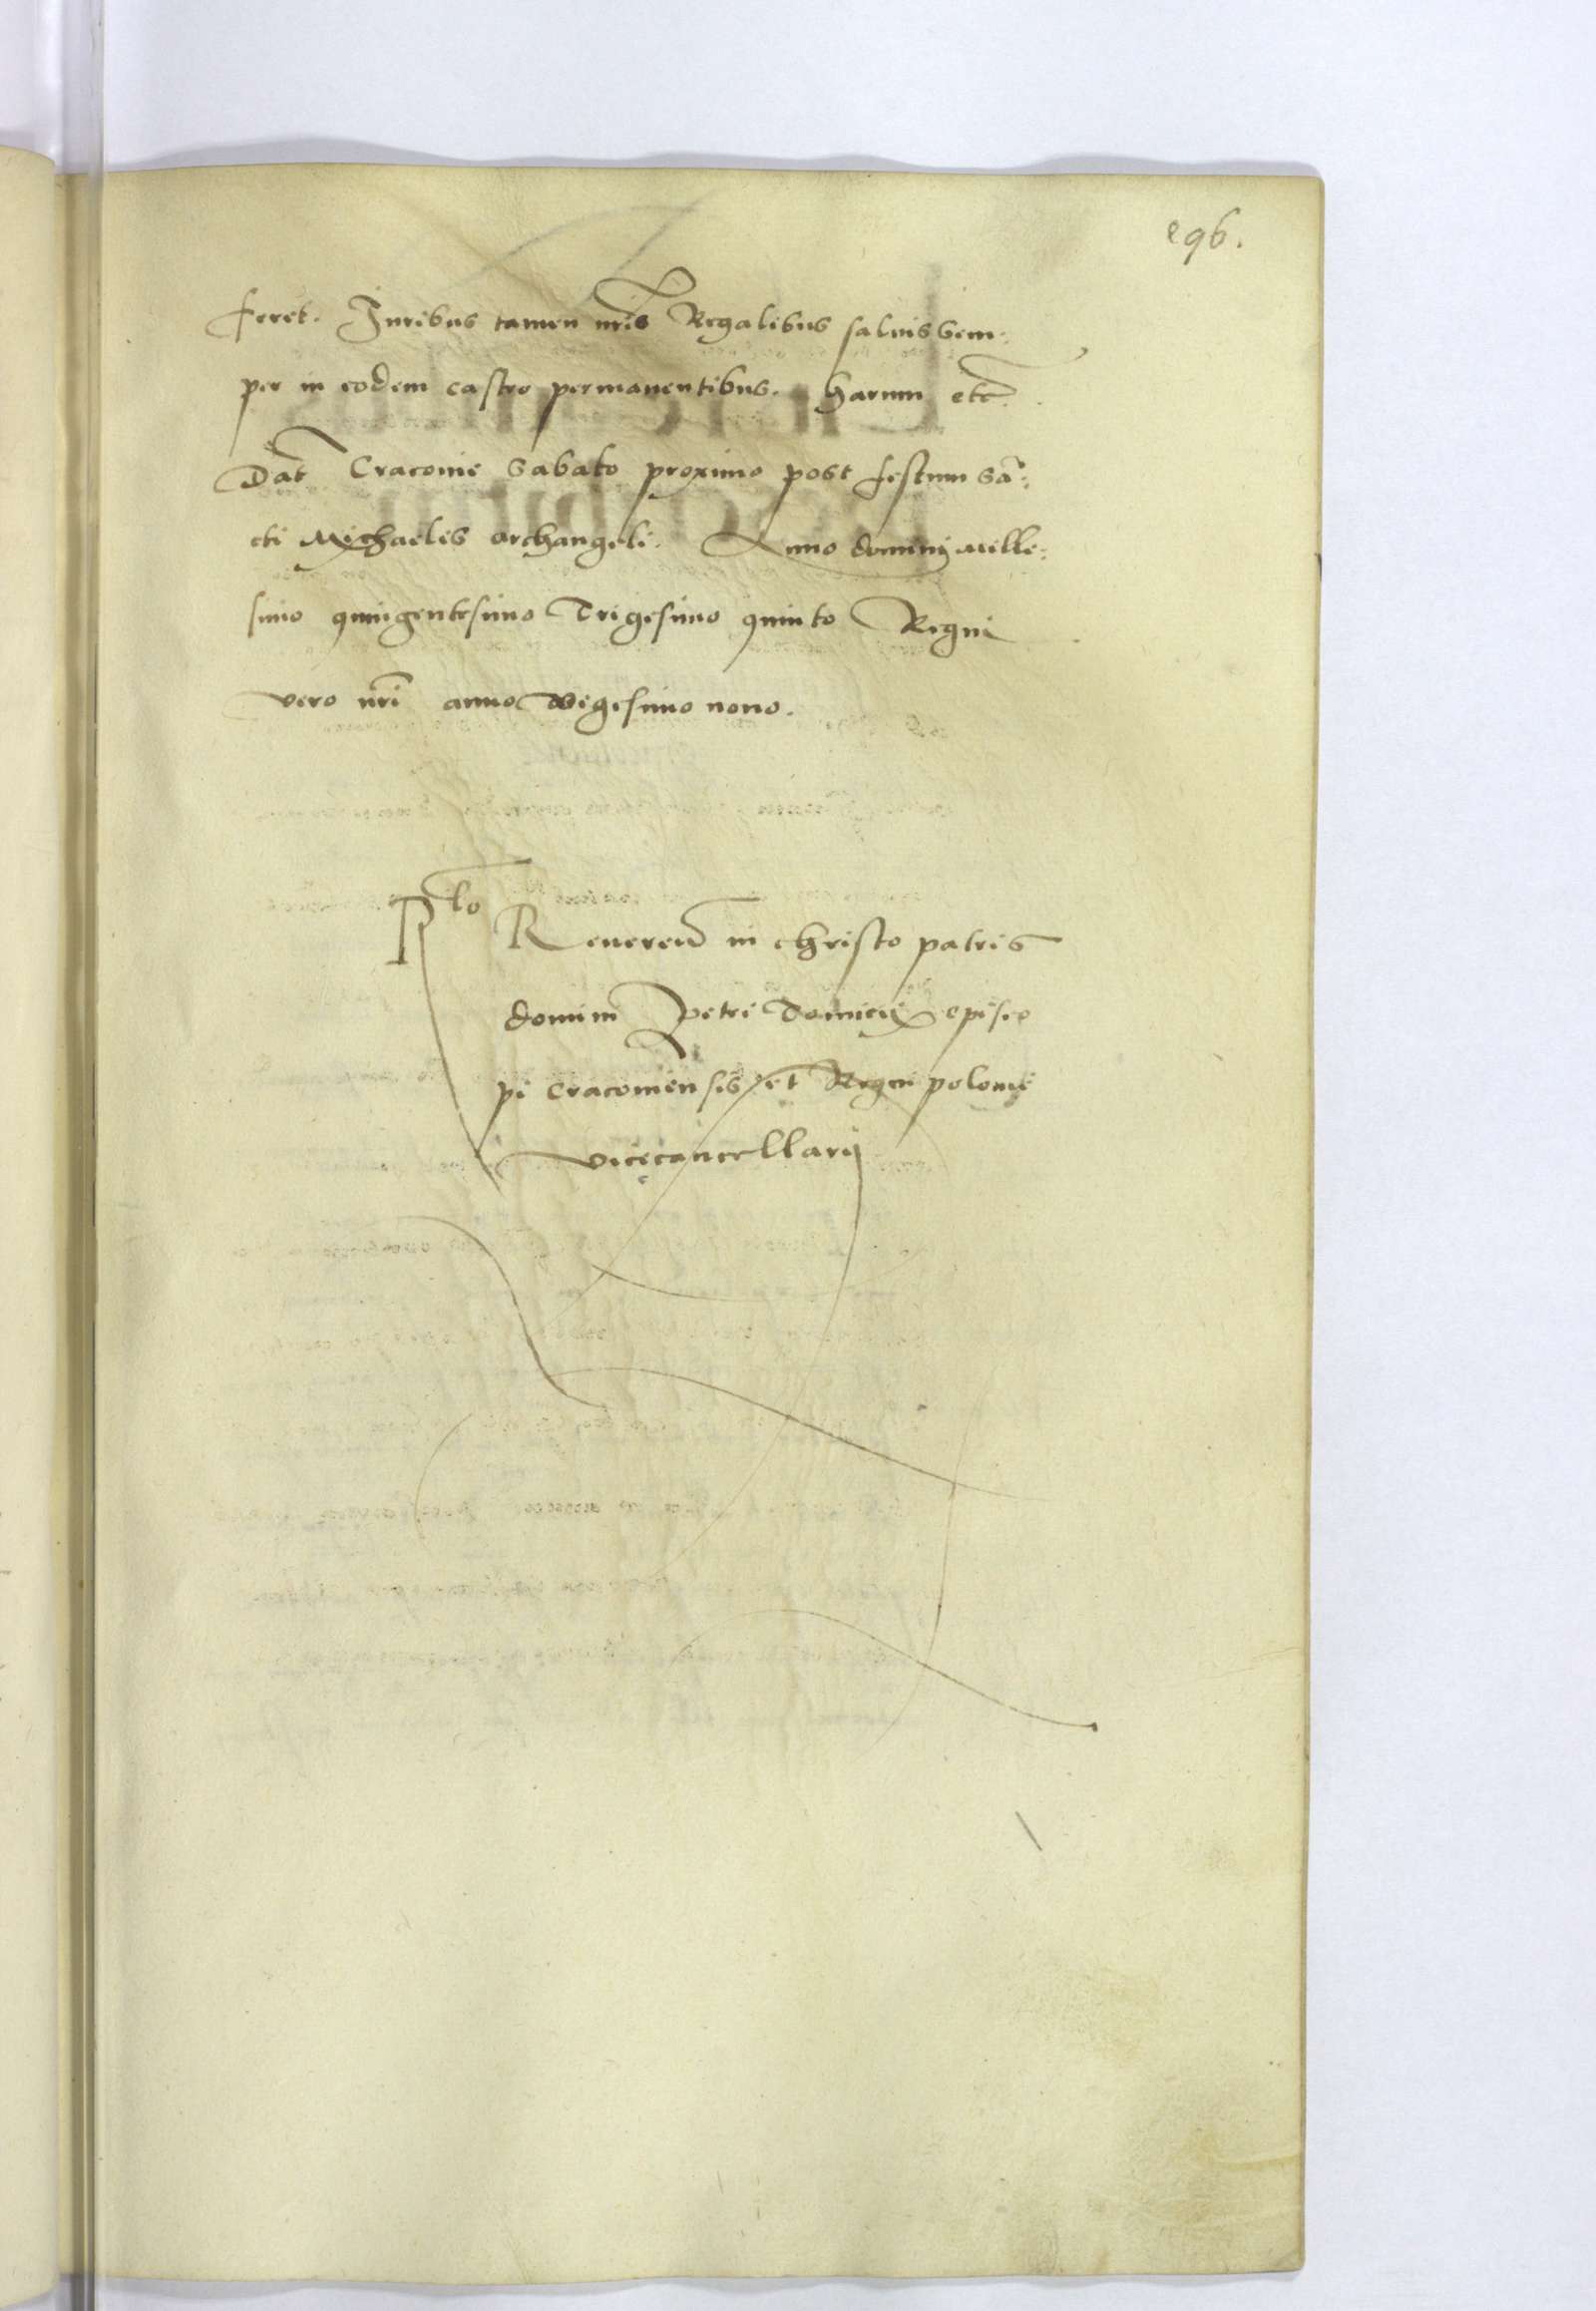 296.
feret. Iuribus tamen nris Regalibus salvis sem:
per in eodem castro permanentibus. harum etc.
Dat Cracovie Sabato proximo post festum sa:
cti Michaelis archangeli. Anno dominj mille:
simo quingentesimo Trigesimo quinto Regni
vero nri anno Vigesimo nono.
Rlo Reveren in christo patris
domini Petri Tomicij episco
pi cracoviensis et Regni polonie
vicecancellarij